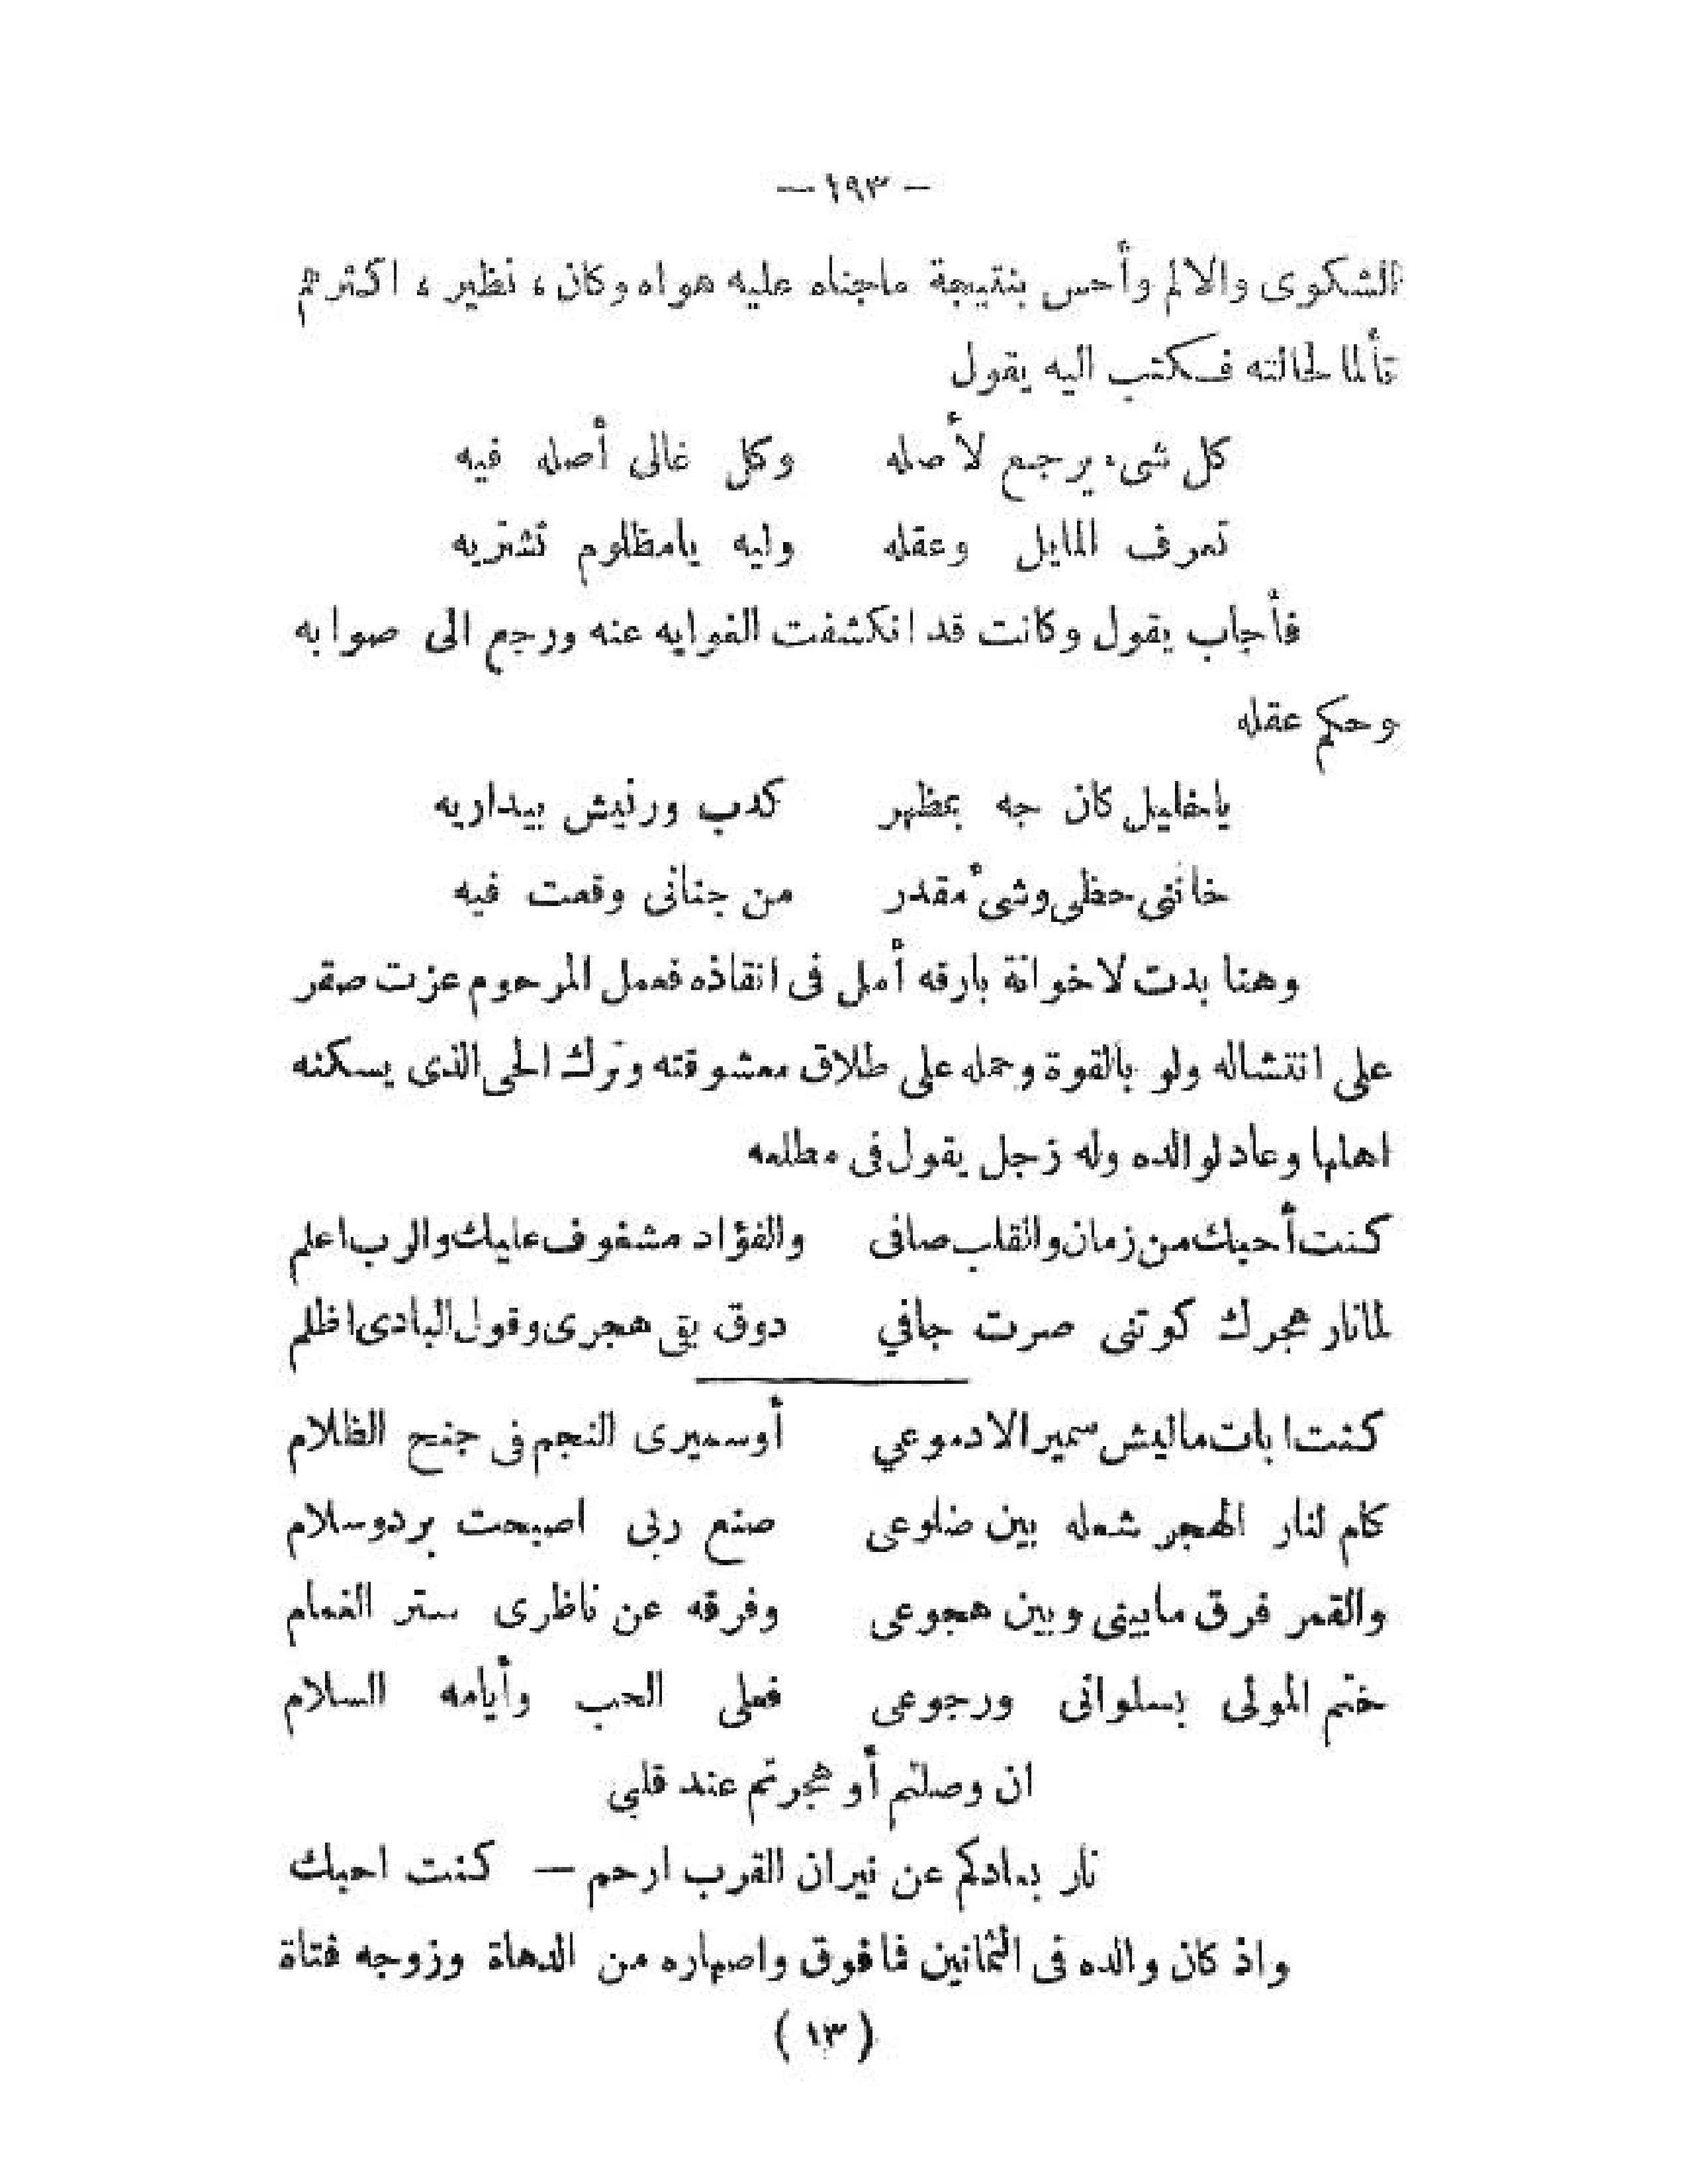 — ١٩٣ —
الشكوى والالم وأحس بنتيجة ماجناه عليه هواه وكان ، نظير ، اكثرهم
تألما لحالته فكتب اليه يقول
كل شىء يرجع لأصله وكل غالى أصله فيه
تعرف المايل وعقله وليه يامظلوم تشتريه
فأجاب يقول وكانت قد انكشفت الغوايه عنه ورجع الى صوابه
وحكم عقله
ياخليل كان جه بمظهر كدب ورنيش بيداريه
خانني حظى وشىء مقدر من جنانى وقعت فيه
وهنا بدت لاخوانة بارقه أمل فى انقاذه فعمل المرحوم عزت صقر
على انتشاله ولو بالقوة وحمله على طلاق معشوقته وترك الحى الذى يسكنه
اهلها وعاد لوالده وله زجل يقول فى مطلعه
كنت أحبك من زمان والقلب صافى والفؤاد مشغوف عليك والرب اعلم
لما نار هجرك كوتنى صرت جافي دوق بقى هجرى وقول البادى اظلم
كنت ابات ماليش سمير الا دموعي أوسميرى النجم فى جنح الظلام
كام لنار الهجر شعله بين ضلوعى صنع ربى اصبحت بردوسلام
والقمر فرق مابينى وبين هجوعى وفرقه عن ناظرى ستر الغمام
ختم المولى بسلوانى ورجوعى فعلى الحب وأيامه السلام
ان وصلتم أو هجرتم عند قلبى
نار بعادكم عن نيران القرب ارحم — كنت احبك
واذ كان والده فى الثمانين فما فوق واصهاره من الدهاة وزوجه فتاة
( ١٣ )